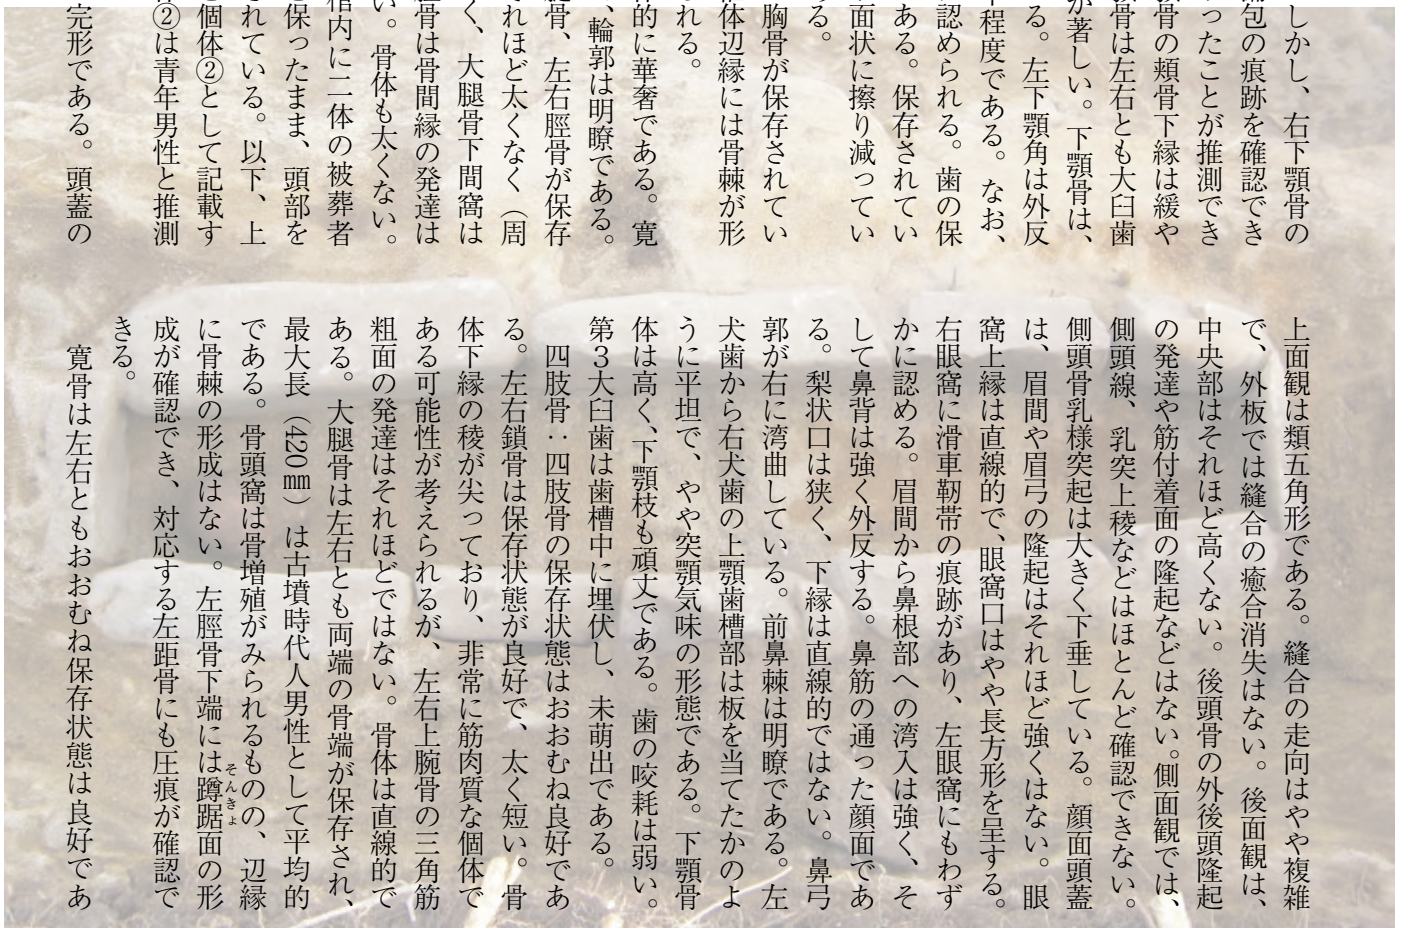 しかし、右下顎骨の
包の痕跡を確認でき
ったことが推測でき
骨の頬骨下縁は緩や
骨は左右とも大臼歯
が著しい。下顎骨は、
る。左下顎角は外反
程度である。なお、
認められる。歯の保
ある。保存されてい
面状に擦り減ってい
る。
胸骨が保存されてい
体辺縁には骨棘が形
れる。
的に華奢である。寛
、輪郭は明瞭である。
腿骨、左右脛骨が保存
れほど太くなく(周
く、大腿骨下間窩は
脛骨は骨間縁の発達は
い。骨体も太くない。
棺内に二体の被葬者
保ったまま、頭部を
されている。以下、上
個体②として記載す
②は青年男性と推測
完形である。頭蓋の
上面観は類五角形である。縫合の走向はやや複雑
で、外板では縫合の癒合消失はない。後面観は、
中央部はそれほど高くない。後頭骨の外後頭隆起
の発達や筋付着面の隆起などはない。側面観では、
側頭線、乳突上稜などはほとんど確認できない。
側頭骨乳様突起は大きく下垂している。顔面頭蓋
は、眉間や眉弓の隆起はそれほど強くはない。眼
窩上縁は直線的で、眼窩口はやや長方形を呈する。
右眼窩に滑車靭帯の痕跡があり、左眼窩にもわず
かに認める。眉間から鼻根部への湾入は強く、そ
して鼻背は強く外反する。鼻筋の通った顔面であ
る。梨状口は狭く、下縁は直線的ではない。鼻弓
郭が右に湾曲している。前鼻棘は明瞭である。左
犬歯から右犬歯の上顎歯槽部は板を当てたかのよ
うに平坦で、やや突顎気味の形態である。下顎骨
体は高く、下顎枝も頑丈である。歯の咬耗は弱い。
第3大臼歯は歯槽中に埋伏し、未萌出である。
四肢骨：四肢骨の保存状態はおおむね良好であ
る。左右鎖骨は保存状態が良好で、太く短い。骨
体下縁の稜が尖っており、非常に筋肉質な個体で
ある可能性が考えられるが、左右上腕骨の三角筋
粗面の発達はそれほどではない。骨体は直線的で
ある。大腿骨は左右とも両端の骨端が保存され、
最大長（420㎜）は古墳時代人男性として平均的
である。骨頭窩は骨増殖がみられるものの、辺縁
に骨棘の形成はない。左脛骨下端には蹲踞面の形
そんきょ
成が確認でき、対応する左距骨にも圧痕が確認で
きる。
寛骨は左右ともおおむね保存状態は良好であ